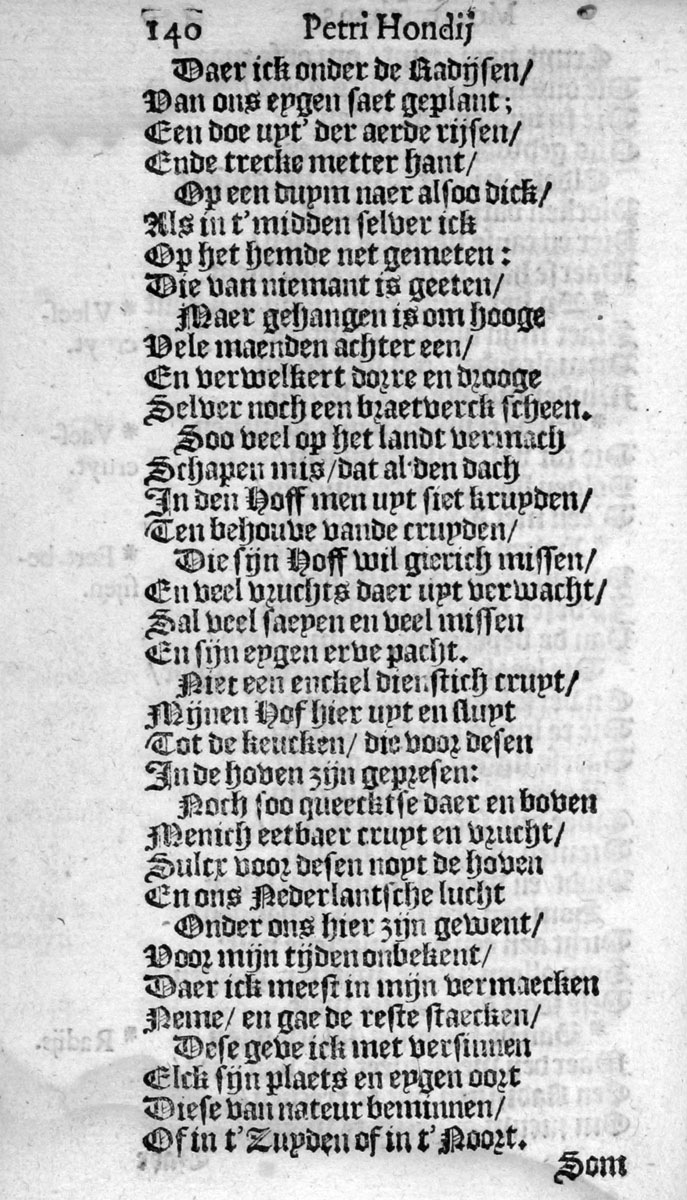 140 Petri Hondij
Daer ick onder de Radijsen/
Van ons eygen saet geplant;
Een doe uyt' der aerde rijsen/
Ende trecke metter hant/
Op een duym naer alsoo dick/
Als in t'midden selver ick
Op het hemde net gemeten:
Die van niemant is geeten/
Maer gehangen is om hooge
Vele maenden achter een/
En verwelkert dorre en drooge
Selver noch een braetverck scheen.
Soo veel op het landt vermach
Schapen mis/dat al den dach
In den Hoff men uyt siet kruyden/
Ten behouve vande cruyden/
Die sijn Hoff wil gierich missen/
En veel vruchts daer uyt verwacht/
Sal veel saeyen en veel missen
En sijn eygen erve pacht.
Niet een enckel dienstich cruyt/
Mijnen Hof hier uyt en sluyt
Tot de keucken/ die voor desen
In de hoven zijn gepresen:
Noch soo queecktse daer en boven
Menich eetbaer cruyt en vrucht/
Sulcx voor desen noyt de hoven
En ons Nederlantsche lucht
Onder ons hier zijn gewent/
Voor mijn tijden onbekent/
Daer ick meest in mijn vermaecken
Neme/ en gae de reste staecken/
Dese geve ick met versinnen
Elck sijn plaets en eygen oort
Diese van nateur beminnen/
Of in t'Zuyden of in t'Noort.
Som